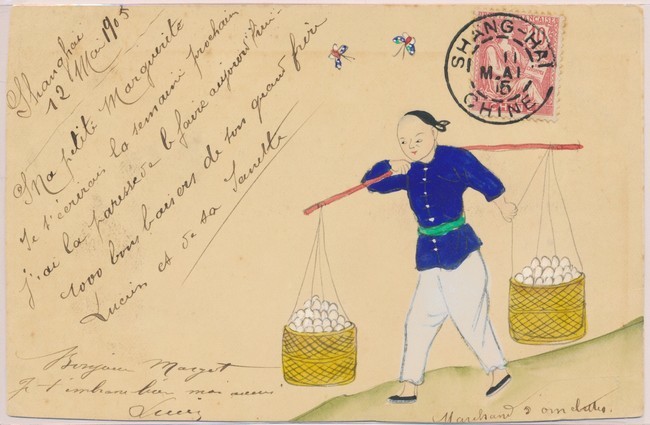 Shanghaï
12 Mai 1905
Ma petite Marguerite
Je t'écrirais la semaine prochain
j'ai la paresse de le faire aujourd'hui
1000 bons baisers de ton grand frère
Lucien et de sa Janette
Bonjour Margot
Je t'embrasse bien moi aussi
Marchand d'omelettes.
SHANG-HAI
11
MAI
CHINE